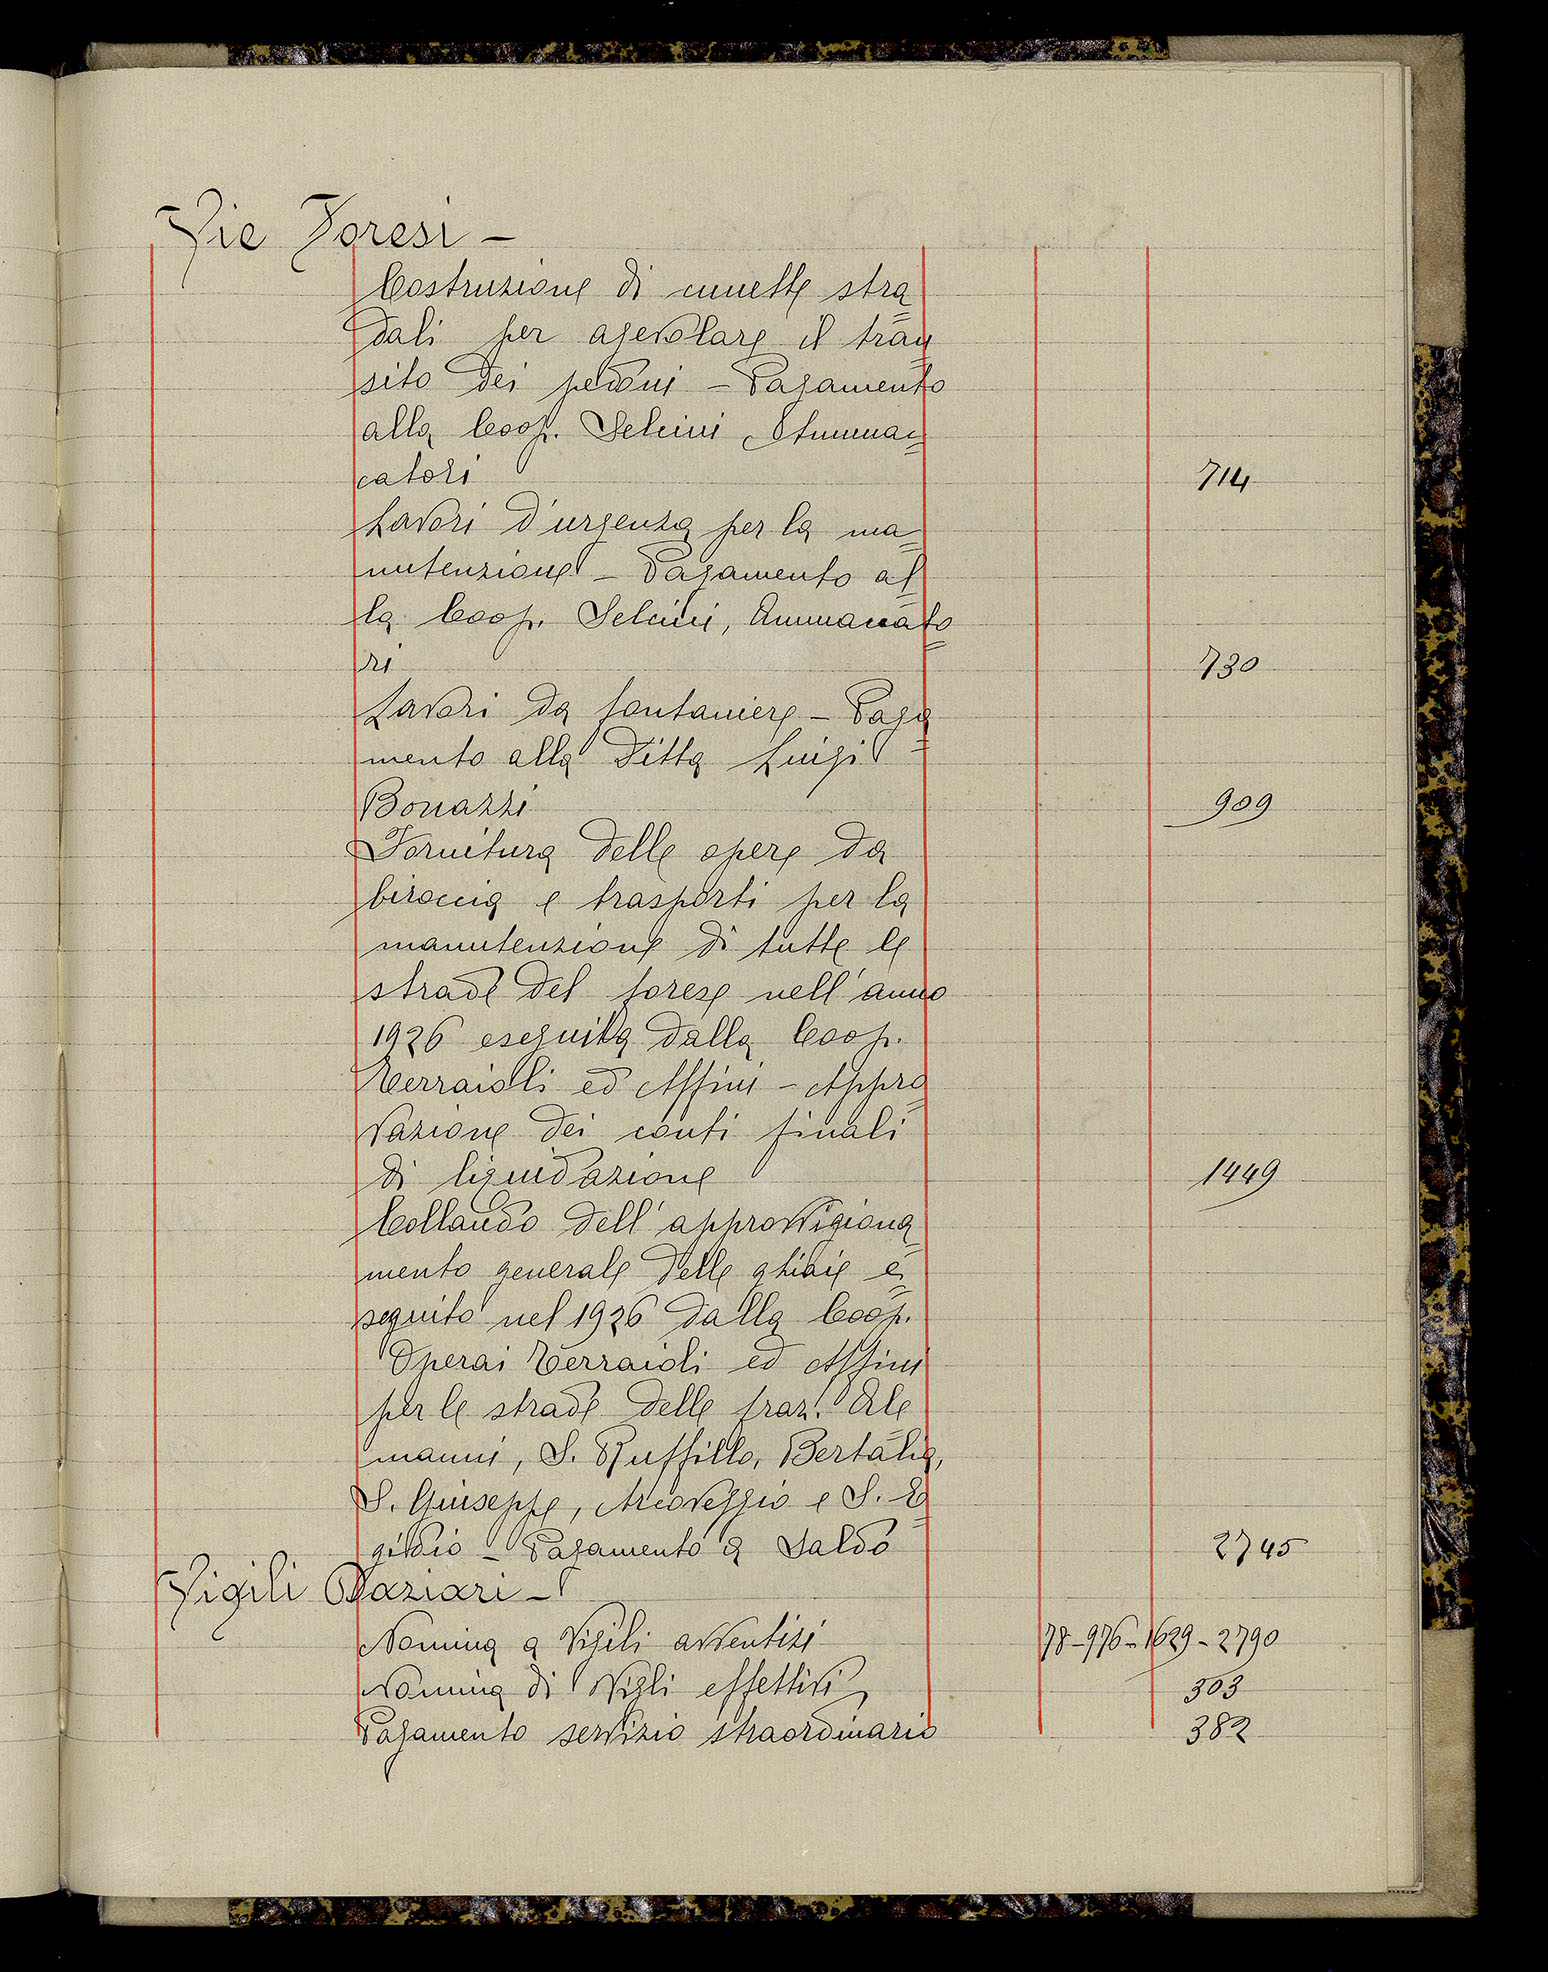 Vie Foresi -
Costruzione di cunette stra=
dali per agevolare il tran=
sito dei pedoni - Pagamento
alla Coop. Selcini Ammac=
catori 714
Lavori d'urgenza per la ma=
nutenzione - Pagamento al=
la Coop. Selcini, Ammaccato=
ri 730
Lavori da fontaniere - Paga=
mento alla Ditta Luigi
Bonazzi 909
Fornitura delle opere da
biroccia e trasporti per la
manutenzione di tutte le
strade del forese nell'anno
1926 eseguita dalla Coop.
Terraioli ed Affini - Appro=
vazione dei conti finali
di liquidazione 1449
Collaudo dell'approvvigiona=
mento generale delle ghiaie e=
seguito nel 1926 dalla Coop.
Operai Terraioli ed Affini
per le strade delle fraz. Ale=
manni, S. Ruffillo, Bertalia,
S. Giuseppe, Arcoveggio e S. E=
gidio - Pagamento a saldo 2745
Vigili Daziari -
Nomina a Vigili avventizi 78-976-1629-2790
Nomina di Vigli effettivi 303
Pagamento servizio straordinario 382